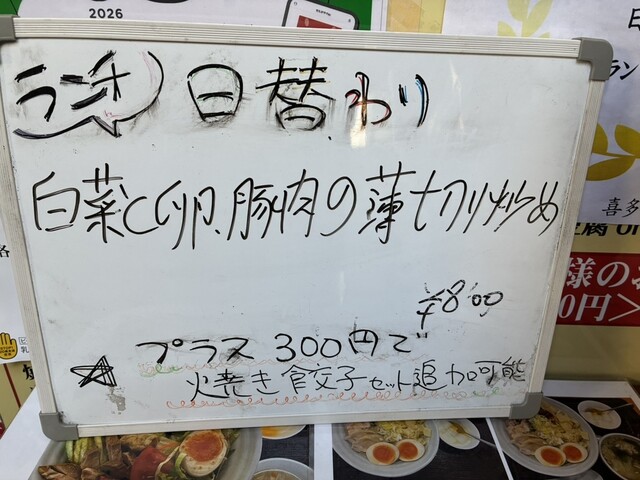 2026
ランチ 日替わり
白菜と卵、豚肉の薄切り炒め
¥800
プラス300円で
☆ 焼き餃子セット追加可能
ラン
喜多
様のお
0円>